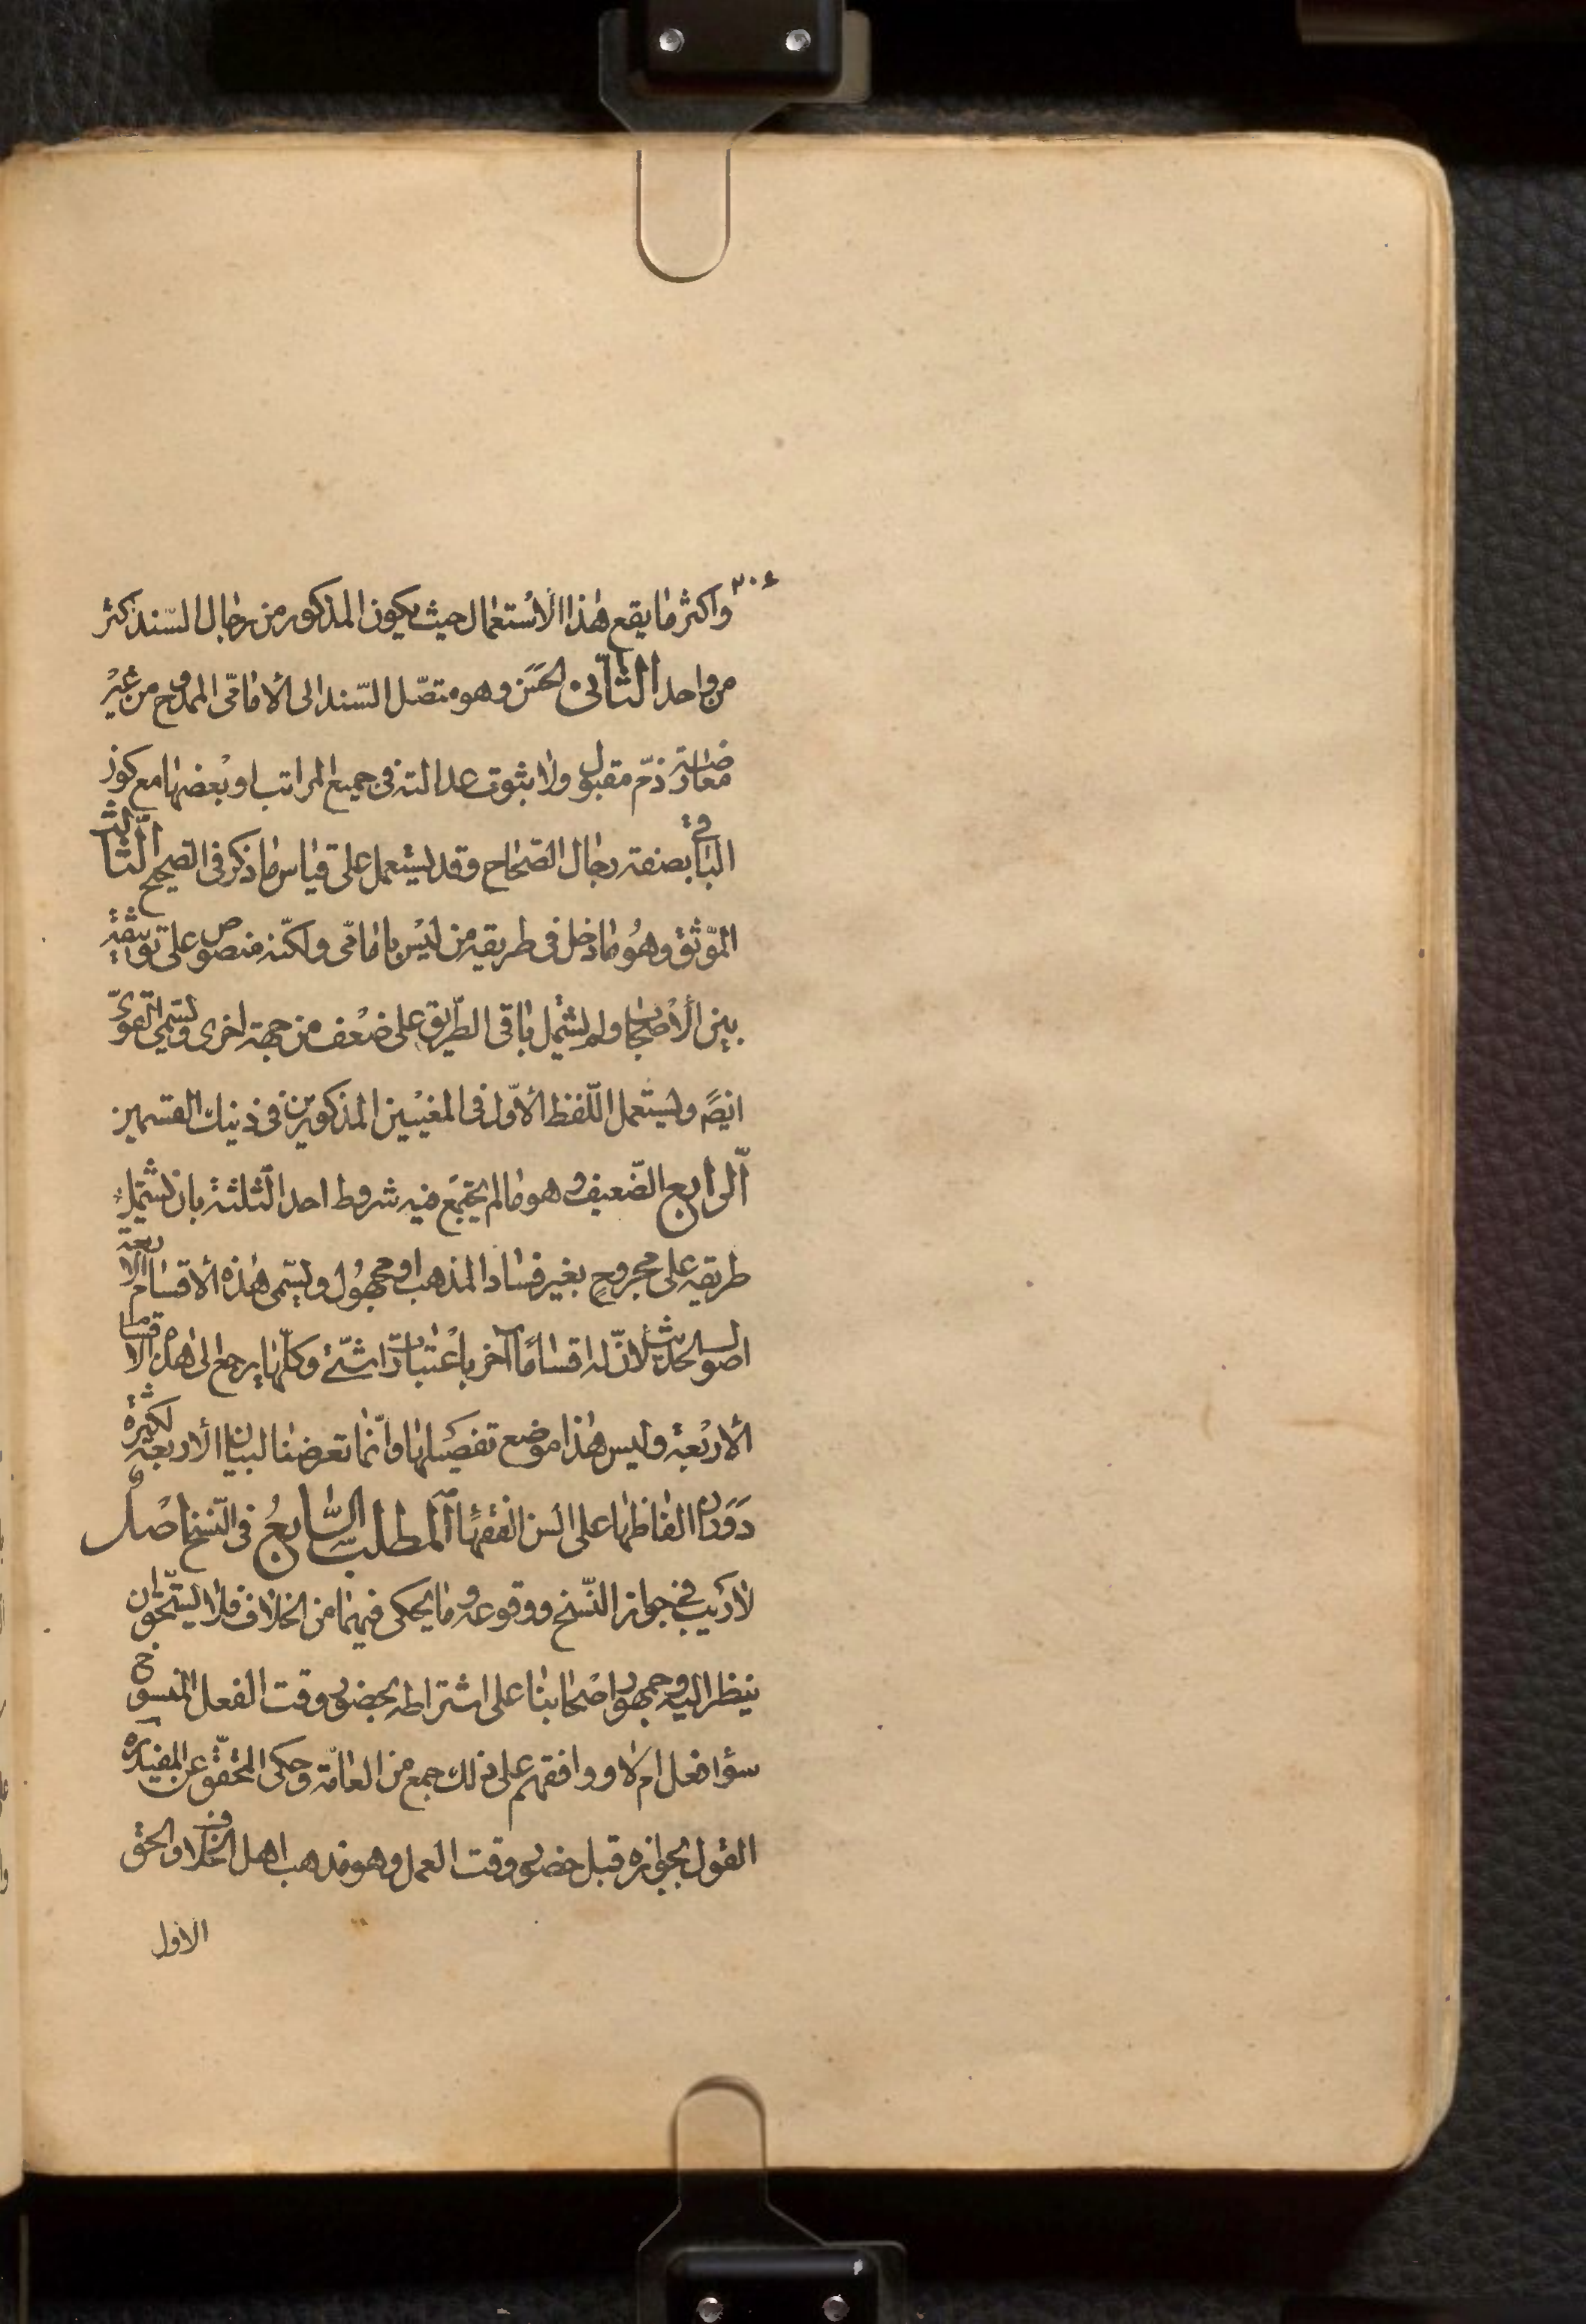 ٣٠٤
واكثر ما يقع هذا الاستعمال حيث يكون المذكور من رجال السند كثر
من واحد الثاني الحسن وهو متصل السند الى الامامى الممدوح من غير
معارضة ذم مقبول ولا ثبوت عدالته فى جميع المراتب او بعضها مع كون
الباقى بصفة رجال الصحاح وقد يستعمل على قياس ما ذكر فى الصحيح الثالث
الموثق وهو ما دخل فى طريقه من ليس بامامى ولكنه منصوص على توثيقه
بين الاصحاب ولم يشتمل باقى الطريق على ضعف من جهة اخرى ويسمى القوى
ايضً ويستعمل اللفظ الاول فى المعنيين المذكورين فى ذينك القسمين
الرابع الضعيف وهو ما لم يجتمع فيه شروط احد الثلثة بان يشتمل
طريقه على مجروح بغير فساد المذهب او مجهول ويسمى هذه الاقسام الاربعة
اصول الحديث لان له اقسامًا آخر باعتبارات شتى وكلها يرجع الى هذه الاقسام
الاربعة وليس هذا موضع تفصيلها وانما تعرضنا لبيان الاربعة لكثرة
دوران الفاظها على السن الفقهاء المطلب السابع فى النسخ اصل
لا ريب فى جواز النسخ ووقوعه وما يحكى فيهما من الخلاف فلا يستحق ان
ينظر اليه وجمهور اصحابنا على اشتراطه بحضور وقت الفعل المنسوخ
سؤا فعل ام لا ووافقهم على ذلك جمع من العامة وحكى المحقق عن المفيد ره
القول بجوازه قبل حضور وقت العمل وهو مذهب اهل الخلاف والحق
الاول